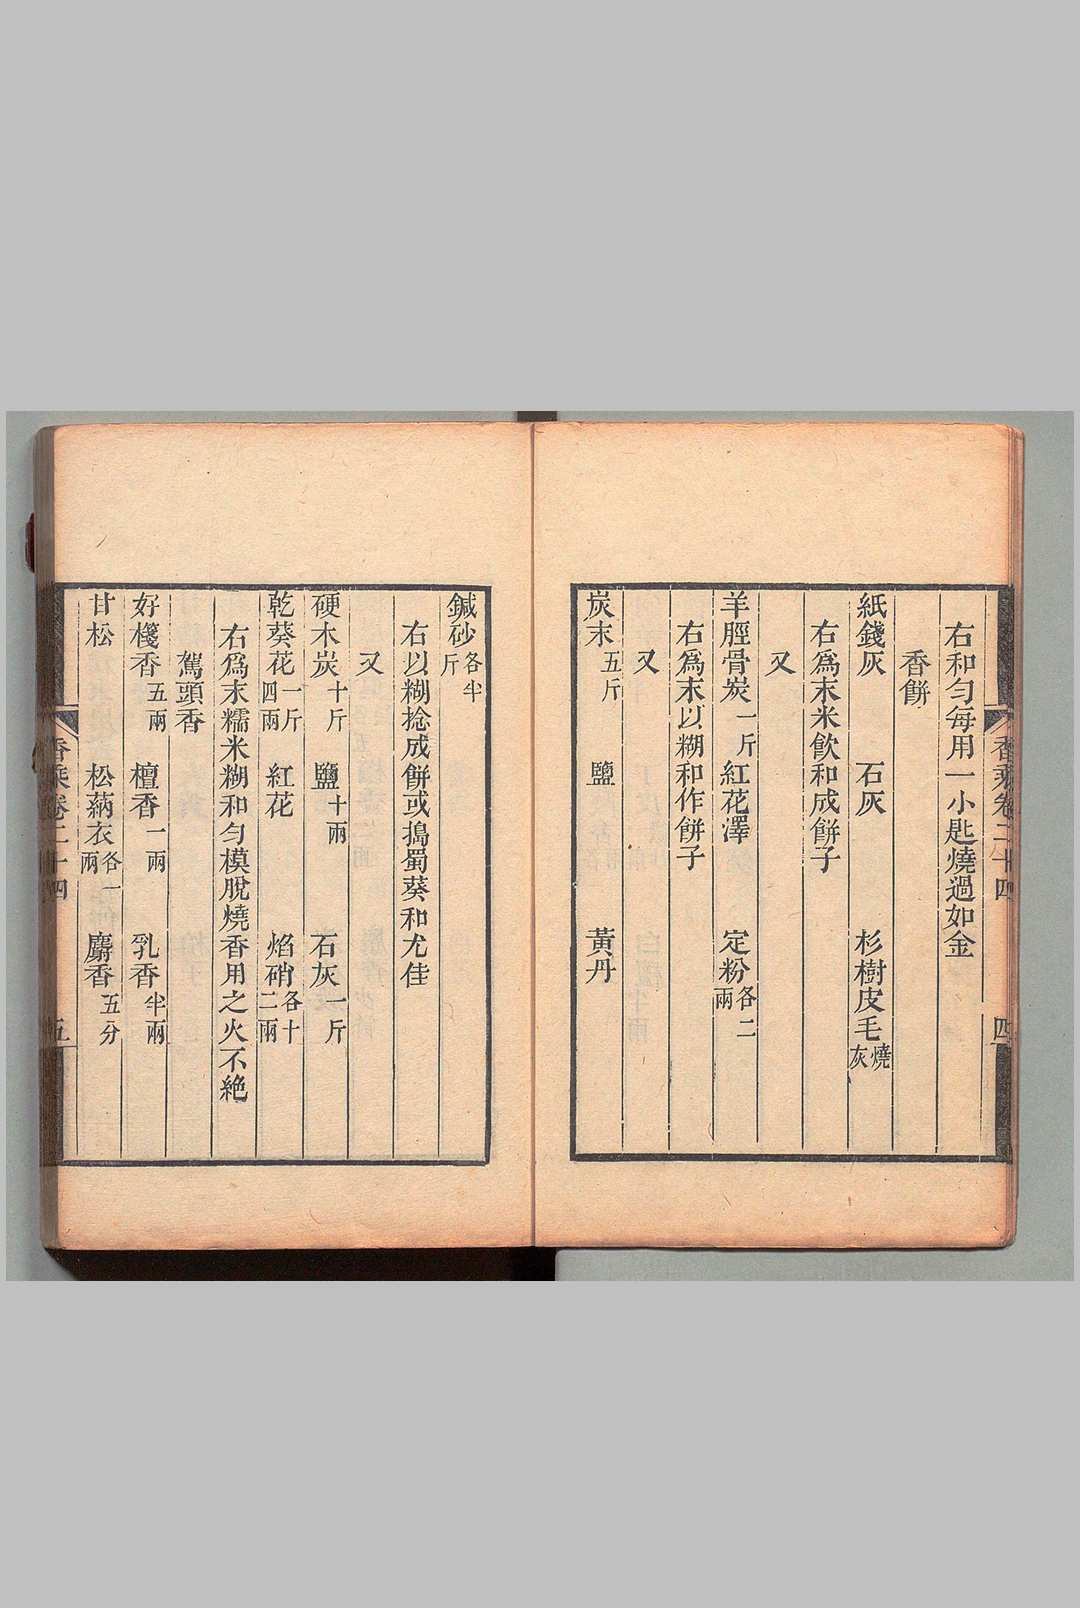 香乘卷二十四
四
右和勻每用一小匙燒過如金
香餅
紙錢灰 石灰 杉樹皮毛燒灰
右爲末米飲和成餅子
又
羊脛骨炭一斤 紅花澤 定粉各二兩
右爲末以糊和作餅子
又
炭末五斤 鹽 黃丹
鍼砂各半斤
右以糊捻成餅或搗蜀葵和尤佳
又
硬木炭十斤 鹽十兩 石灰一斤
乾葵花一斤四兩 紅花 焰硝各十二兩
右爲末糯米糊和勻模脫燒香用之火不絶
駕頭香
好棧香五兩 檀香一兩 乳香半兩
甘松 松蒳衣各一兩 麝香五分
香乘卷二十四
五